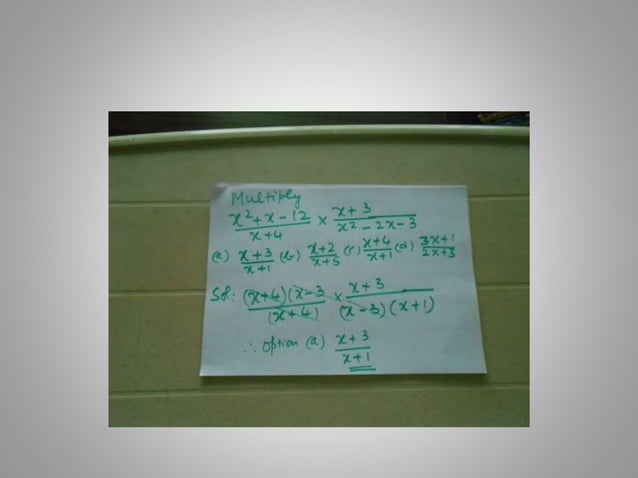 Multiply
x²+x-12/x+4 × x+3/x²-2x-3
(a) x+3/x+1 (b) x+2/x+5 (c) x+4/x+1 (d) 3x+1/2x+3
Sol: (x+4)(x-3/(x+4) × x+3/(x-3)(x+1)
∴ option (a) x+3/x+1